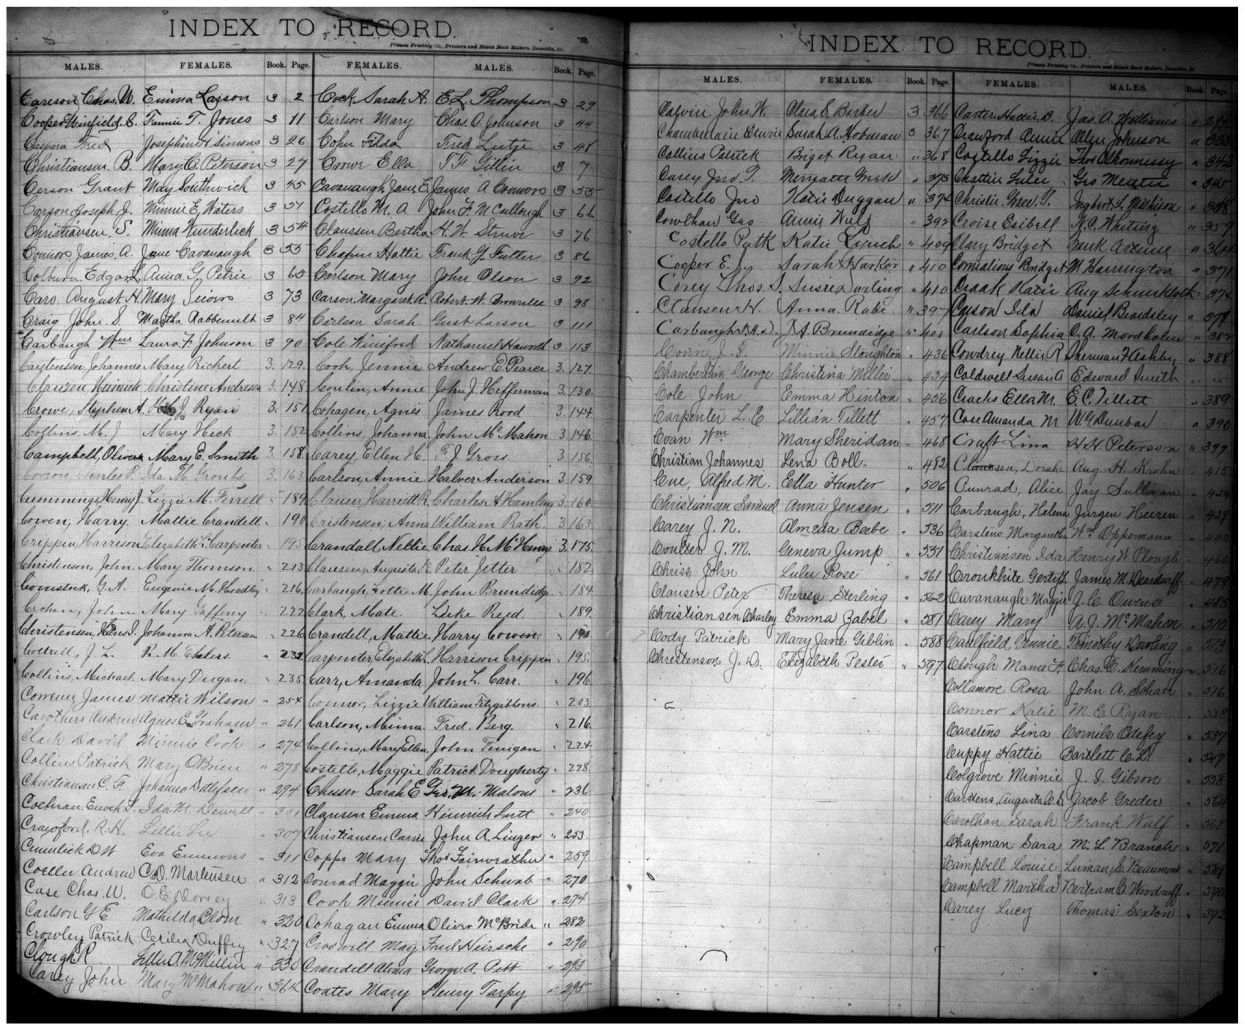 INDEX TO RECORD.
Illinois Printing Co., Printers and Blank Book Makers, Danville, Ill.
MALES. FEMALES. Book. Page.
Carlson, Chas. W. Emma Larson 3 2
Cooper Winfield S. Fannie T. Jones 3 11
Fred Josephine Simons 3 26
Christiansen B. Mary C. Peterson 3 27
Grant May Southwick 3 45
Carson Joseph J. Minnie E. Waters 3 51
Christiansen S. Minna Wunderlich 3 54
Connors James A. Jane Cavanaugh 3 55
Colburn Edgar L. Anna G. Petrie 3 65
Caro August H. Mary 3 73
Craig John S. Martha 3 84
Carbaugh Wm Laura F. Johnson 3 90
Carstensen, Johannes Mary Richert 3. 129.
Clausen Heinrich Christine Andresen 3. 148.
Crowe, Stephen A. J. Ryan 3. 151
Collins, M. J Mary Heck 3. 152
Campbell Oliver Mary E. Smith 3. 158
Charles P. Ida M. 3. 163
Cummings Henry J. Lizzie M. Ferrell " 189
Cowen, Harry. Mattie Crandell " 190
Crippin, Harrison Elizabeth Carpenter " 195
Christensen, John Mary Thomson " 213
Comstock, G. A. Eugenie M. " 216
Crohan, John Mary Gaffeny " 222
Christensen, Hans J. Johanna A. Petersen " 226
Cottrell, J. L. " 232
Collins, Michael Mary Durgan " 235
James Mattie Wilson " 254
Carothers Andrew Agnes E. Graham " 261
Clark David Minnie Cook " 274
Collins Patrick Mary O'Brien " 278
Christiansen C. F. Johanna Detlefsen " 294
Cochran Enoch L. Ida M. Dewell " 301
Crawford, R. H. Lillie " 307
D W Eva Emmons " 311
Andrew C. D. Mortensen " 312
Case Chas. W. O. E. Dorsey " 313
Carlson G E Mathilda Blom " 320
Crowley Patrick Cecilia Duffey " 327
Clough R Lillie A McMillin " 330
Carey John Mary McMahon " 364
FEMALES. MALES. Book. Page.
Cock Sarah A. E. L. Thompson 3 29
Carlson Mary Chas. O. Johnson 3 44
Filda Fred Lutje 3 48
Ella T F Gillin 3 7
Cavanaugh Jane E. James A Connors 3 55
Costello M. A John F. McCullough 3 66
Claussen Bertha H. W. Struve 3 76
Chapin Hattie Frank G. Fuller 3 86
Carlson Mary John Olson 3 92
Carson Margaret A. Robert W. Brownlee 3 98
Carlson Sarah Gust Larson 3 111
Cole Winifred Nathaniel Haworth 3 113
Cook, Jennie Andrew E. Pearce 3. 127.
Conlin, Annie John J. Heffernan 3. 130.
Cohagen, Agnes James Rood 3. 144.
Collins, Johanna. John McMahon 3. 146
Carey, Ellen H. E. J. Gross. 3. 156
Carlson, Annie Halver Anderson 3. 159
Clauser, Harriett R. Charles A. Hamling 3. 160
Christensen, Anna William Rath. 3. 163
Crandall, Nellie Chas. H. McHenry 3. 175.
Clausen, Augusta Peter Jetter " 182
Carbaugh, Lottie M. John Brundidge " 184
Clark, Mate. Zeke Reed. " 189
Crandell, Mattie Harry Cowen, " 190
Carpenter Elizabeth L. Harrison Crippin " 195.
Carr, Amanda John L. Carr. " 196
Connor, Lizzie William Fitzgibbons " 203
Carlson, Minna Fred. Berg. " 216.
Collins, Mary Ellen John Finigan " 224.
Costello, Maggie Patrick Dougherty " 228.
Sarah E Geo. M. Malone " 236
Clausen Emma Heinrich Sutt " 240
Christiansen Carrie John A. Linger " 253
Copps Mary Thos Fairweather " 259
Conrad Maggie John Schwab " 270
Cook Minnie David Clark " 274
Cohagan Emma Oliver McBride " 282
Croswell May Fred Hirsche " 290
Crandell Alma George A. Pitt " 293
Coates Mary Henry Tarpy " 295
INDEX TO RECORD.
Illinois Printing Co., Printers and Blank Book Makers, Danville, Ill.
MALES. FEMALES. Book. Page.
Calvin, John W. Clara E Barber 3 366
Chamberlain Edwin Sarah A. Hobman 3 367
Collins Patrick Briget Ryan " 368
Carey Jno. T. " 375
Costello Jno Katie Duggan " 374
Geo Annie Wulf " 392
Costello Patk Katie Lynch " 409
Cooper E. Sarah Harker " 410
Corey Thos. S. Susie Dowling " 410
Clausen H. Anna Rabe " 397
Carbaugh Brundidge " 401
J. F. Minnie Stoughton " 436
Chamberlin George Christina Miller " 454
Cole John Emma Hinton " 456
Carpenter L. E Lillian Tillett " 457
Wm Mary Sheridan " 468
Christian Johannes Lena Boll. " 482
Cue, Alfred M. Ella Hunter " 506
Christiansen Samuel Anna Jensen " 511
Carey J. N. Almeda Babe " 536
Coulter J. M. Geneva Jump " 551
Chriss John Lulu Rose " 561
Clausen Peter Theresa Sterling " 562
Christiansen Charley Emma Babel " 581
Cody Patrick Mary Jane Giblin " 588
Christensen J. D. Elizabeth Tester " 597
FEMALES. MALES. Book. Page.
Carter Hattie B. Jas. A. Williams
Crawford Annie Allen Johnson
Costello Lizzie Thos O'Shonnessy " 342
Chattin Lulu Geo " 345
Christie Grace T. " 348
Croise Esibell W. C. Whiting " 359
Clary Bridget
Bridget M Harrington " 371
Craak Katie Aug " 374
Carson Ida Daniel Beardsley " 378
Carlson Sophia C. A. " 382
Cowdrey Nellie R Sherman F Ashby " 388
Coldwell Susan A Edward Smith " "
Cracks Ella M. E. C. Tillett " 389
Case Amanda M W G Dunbar " 390
Craft Lina H. H. Peterson " 399
Claussen, Dorothe Aug. H. Krohn " 415
Cunrad, Alice Jay Sullivan " 424
Carbaugh, Helena Jurgen Heeren " 429
Carstens Margaretha Wm Oppermann " 440
Christiansen Ida Henry A Plough " 460
Cronkhite Gertie James M. Deardurff " 479
Cavanaugh Maggie J. C. Owens " 485
Carey Mary A. J. McMahan " 510
Caulfield Fannie Timothy Dowling " 573
Clough Mana Chas. C. Hemming " 576
Collamore Rosa John A. Schau " 516
Connor Katie M. E. Ryan " 528
Carstens Lina Cornils Otefey " 537
Cuppy Hattie Bartlett C. L. " 549
Colgrove Minnie J. I. Gibson " 558
Carstens, Augusta Jacob Greder " 564
Carothan Sarah Frank Wulf " 568
Chapman Sara M. L. Branch " 571
Campbell Louise Luman S. Beaumont " 589
Campbell Martha Bertram C. Woodruff " 590
Carey Lucy Thomas Sexton " 592